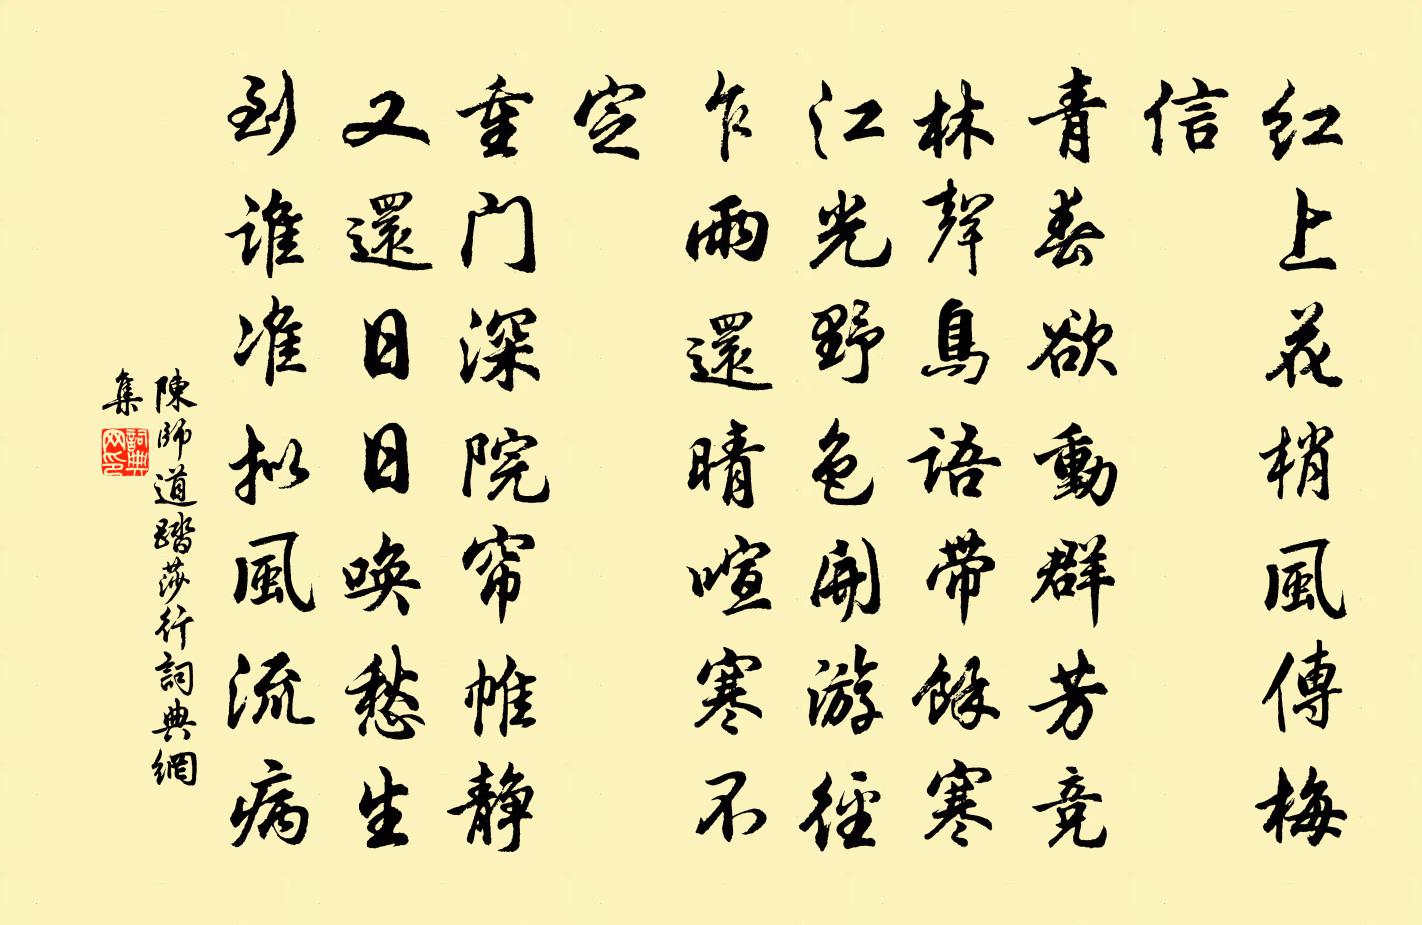 红上花梢風傳梅
信
青春欲動群芳竞
林聲鳥語帶餘寒
江光野色開游徑
乍雨還晴喧寒不
定
重门深院帘帷静
又還日日唤愁生
到谁准拟風流病
陳師道踏莎行詞典網
集
詞典网印